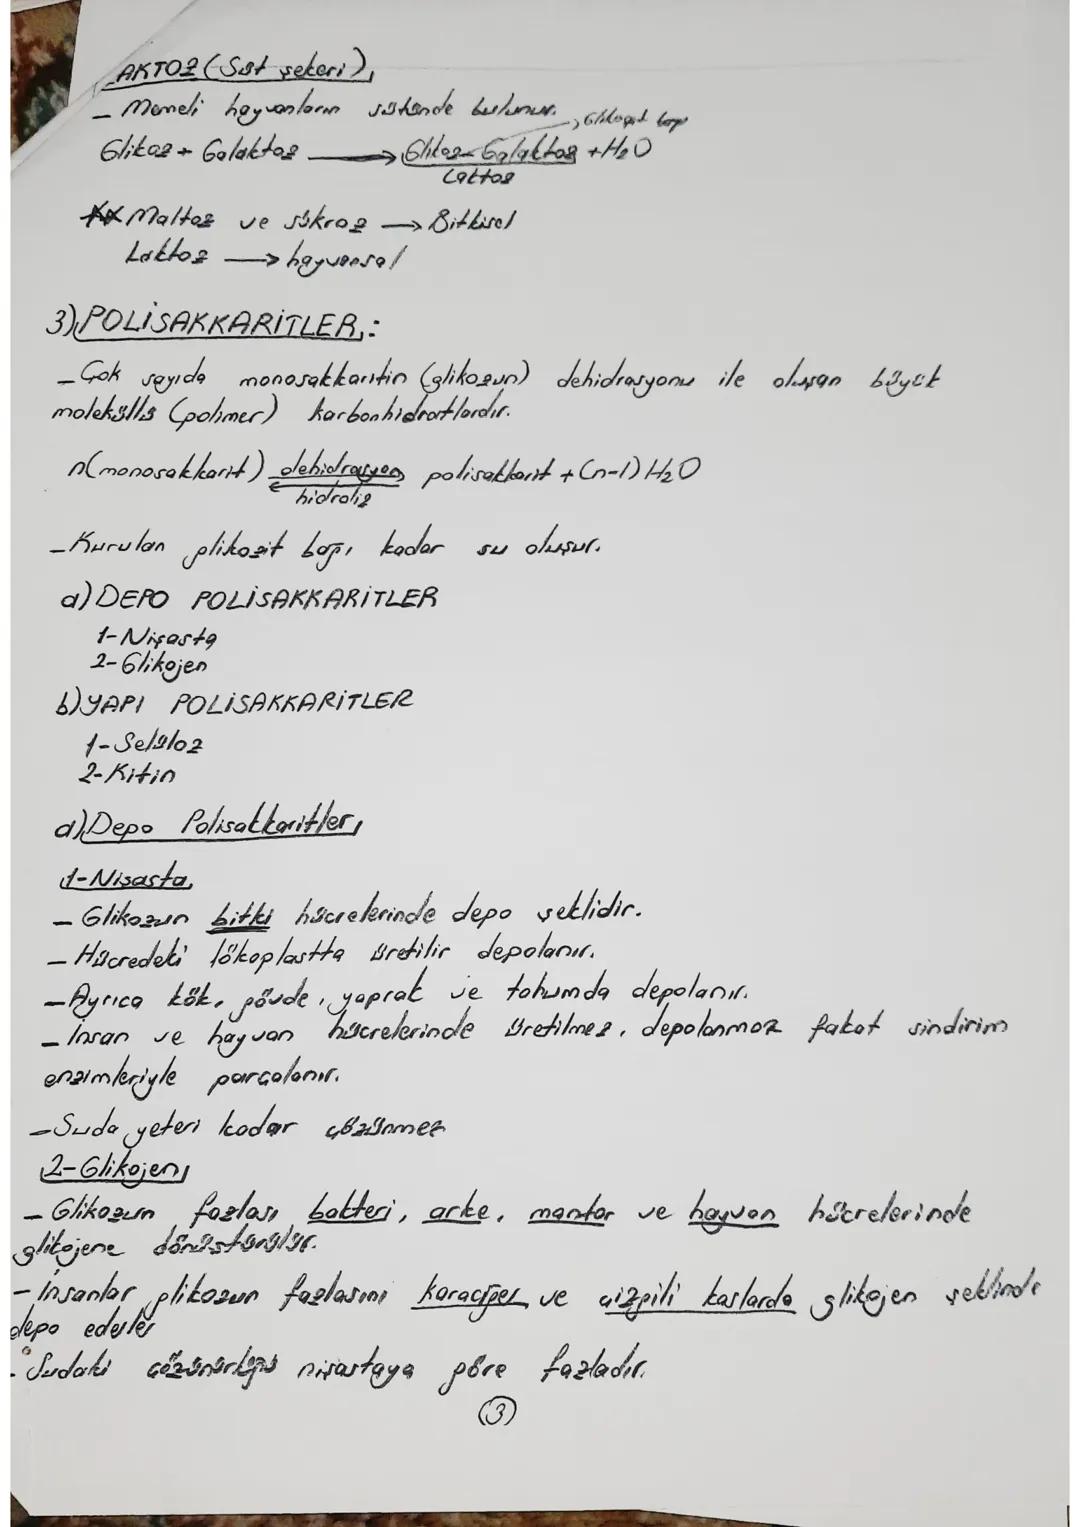 LAKTOZ (Süt şekeri)
- Memeli hayvanların sütünde bulunur.
→ Glikozit bağı
Glikoz + Galaktoz → Glikoz - Galaktoz + H₂O
Laktoz
** Maltoz ve sükroz → Bitkisel
Laktoz → hayvansal
3) POLİSAKKARİTLER:
- Çok sayıda monosakkaritin (glikozun) dehidrasyonu ile oluşan büyük
moleküllü (polimer) karbonhidratlardır.
n(monosakkarit) dehidrasyon polisakkarit + (n-1) H₂O
hidroliz
- Kurulan glikozit bağı kadar su oluşur.
a) DEPO POLİSAKKARİTLER
1- Nişasta
2- Glikojen
b) YAPI POLİSAKKARİTLER
1- Selüloz
2- Kitin
a) Depo Polisakkaritler
1- Nişasta
- Glikozun bitki hücrelerinde depo şeklidir.
- Hücredeki lökoplastta üretilir depolanır.
- Ayrıca kök, gövde, yaprak ve tohumda depolanır.
- İnsan ve hayvan hücrelerinde üretilmez, depolanmaz fakat sindirim
enzimleriyle parçalanır.
- Suda yeteri kadar çözünmez
2- Glikojen
- Glikozun fazlası bakteri, arke, mantar ve hayvan hücrelerinde
glikojene dönüştürülür.
- İnsanlar glikozun fazlasını karaciğer ve çizgili kaslarda glikojen şeklinde
depo ederler
- Sudaki çözünürlüğü nişastaya göre fazladır.
3